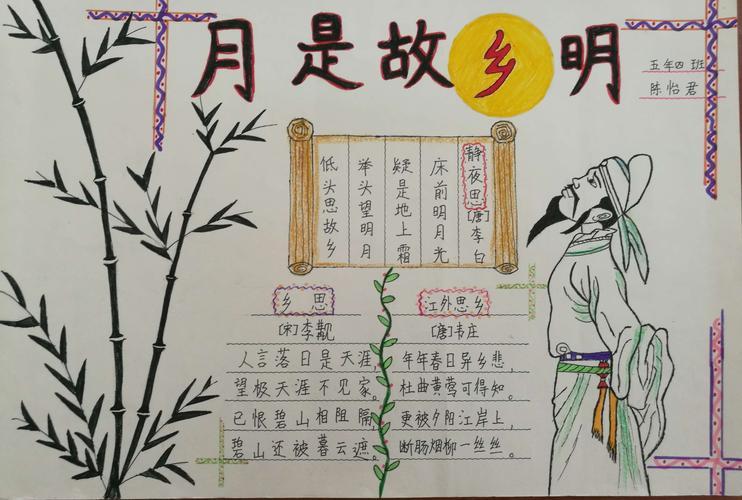 月是故乡明
五年四班
陈怡君
静夜思
[唐]李白
床前明月光
疑是地上霜
举头望明月
低头思故乡
乡思
[宋]李觏
人言落日是天涯，
望极天涯不见家。
已恨碧山相阻隔，
碧山还被暮云遮。
江外思乡
[唐]韦庄
年年春日异乡悲，
杜曲黄莺可得知。
更被夕阳江岸上，
断肠烟柳一丝丝。